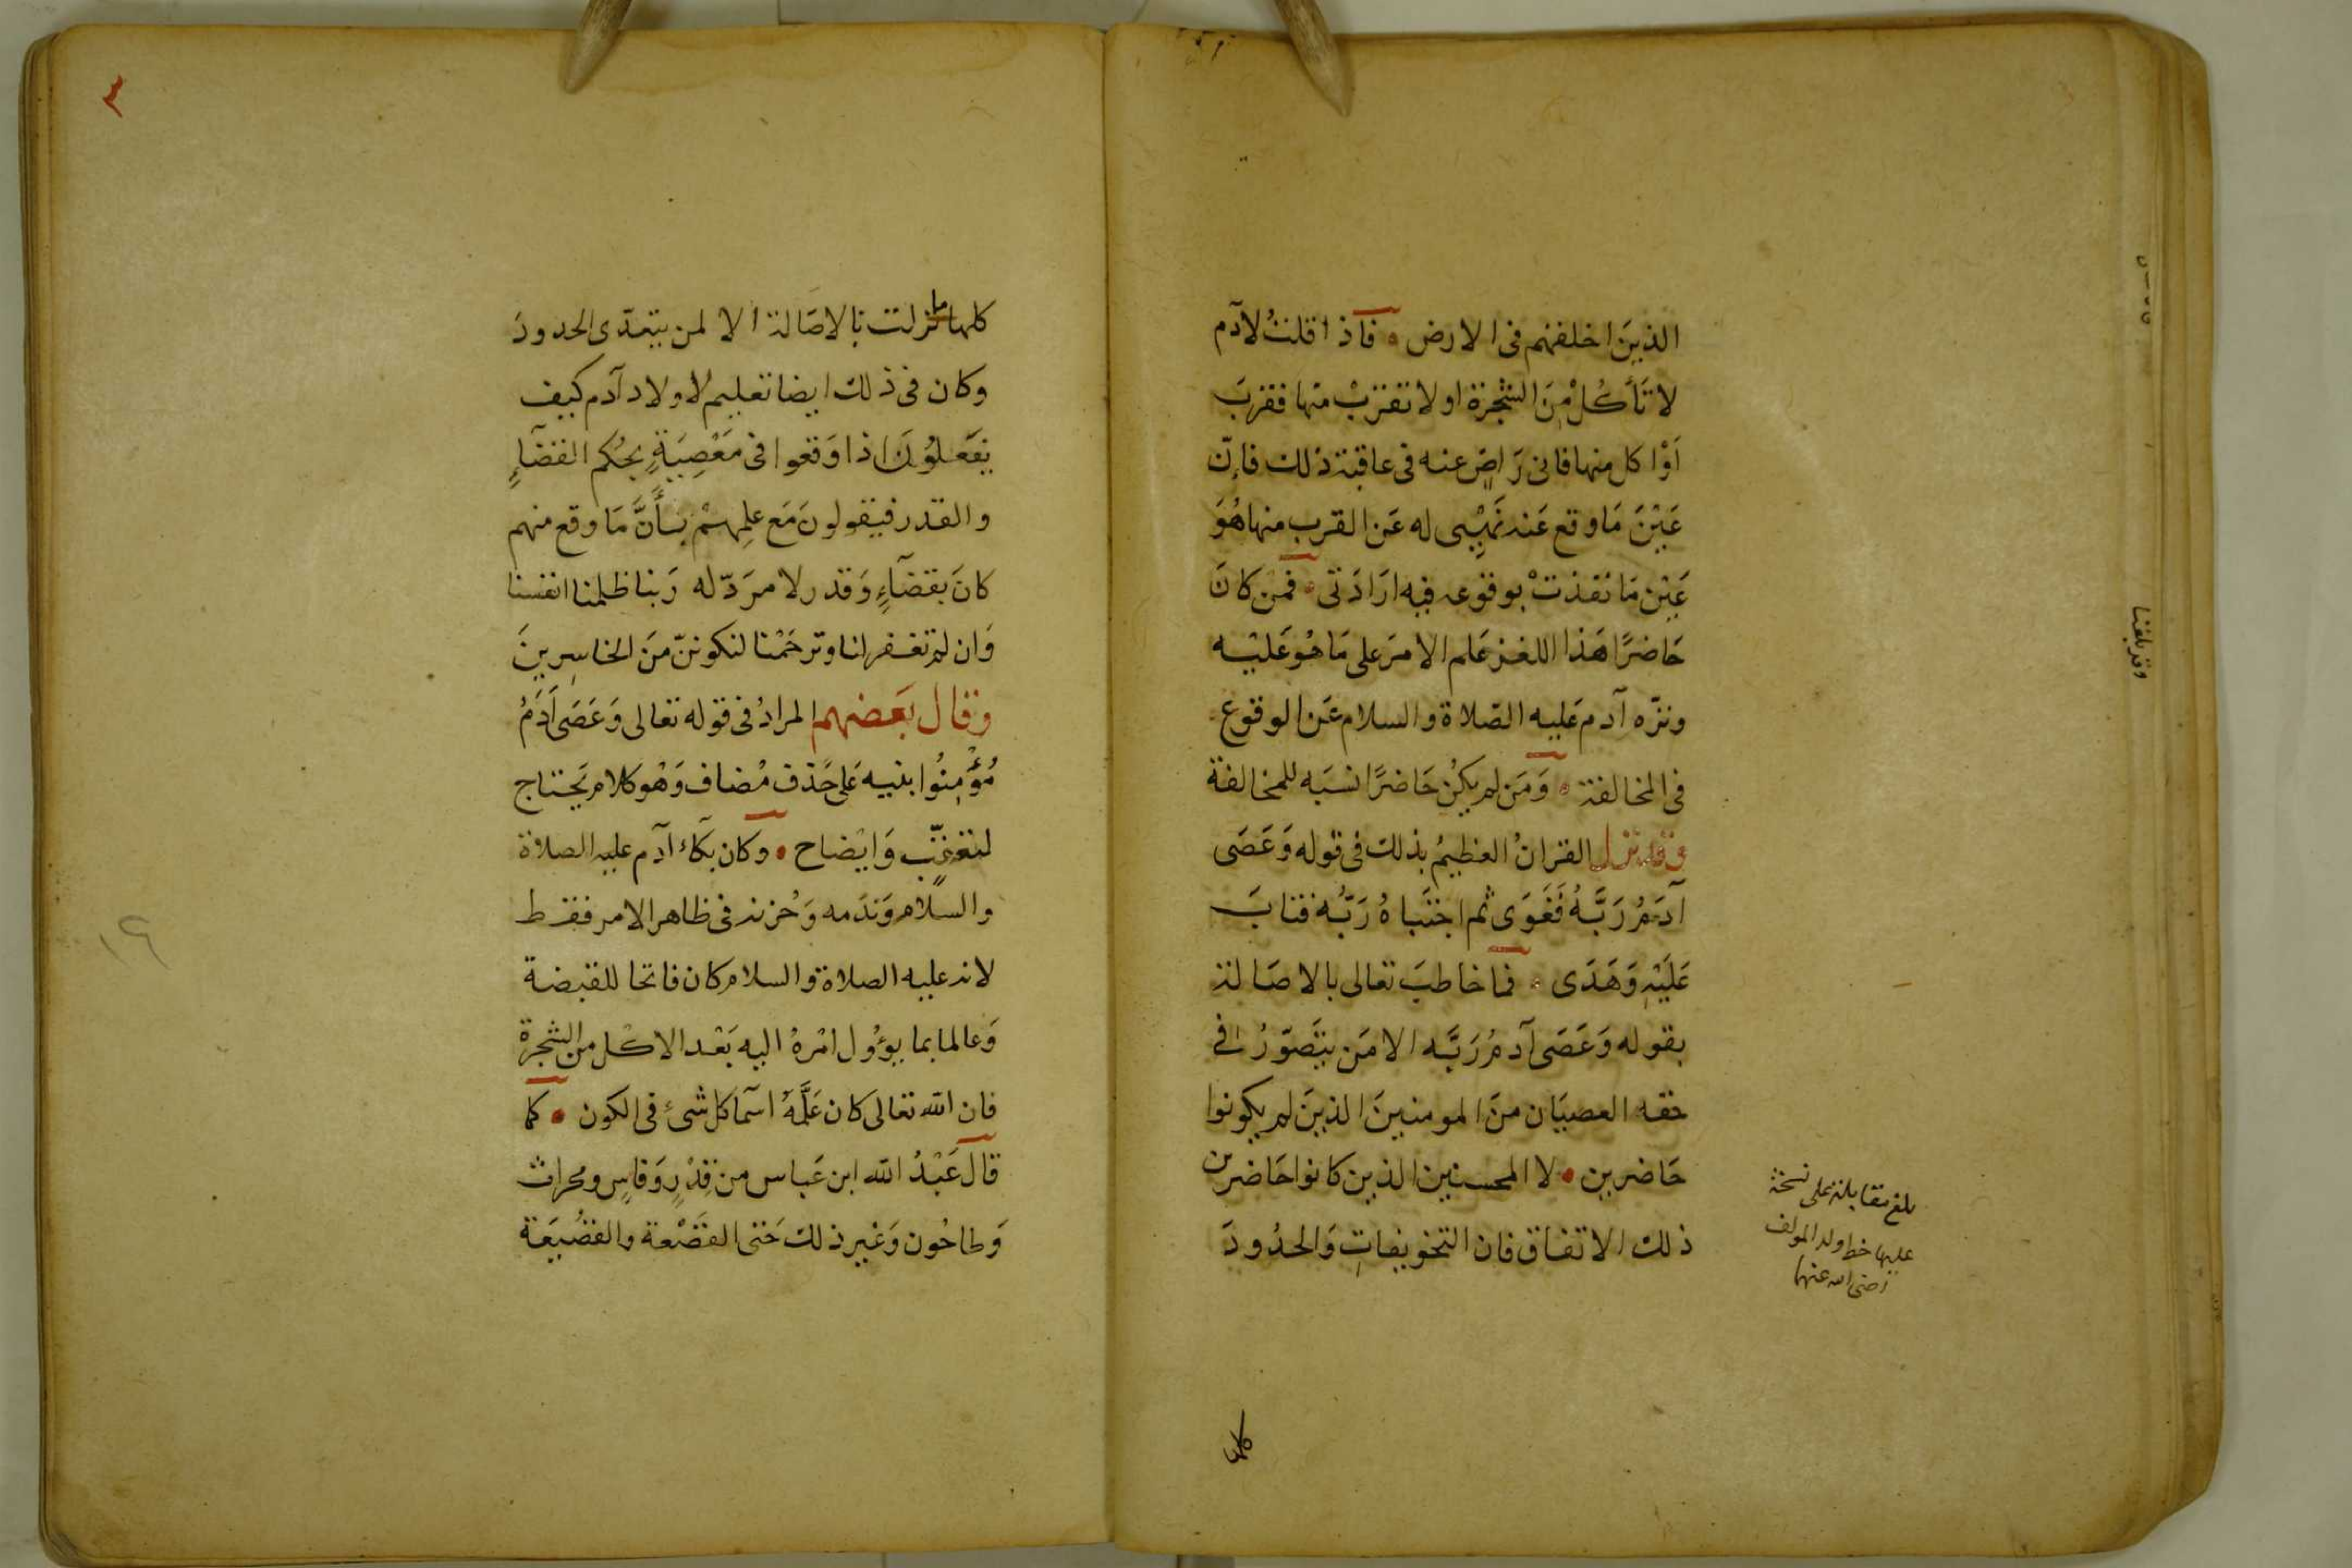 الذينَ اخلفهم فى الارض • فاذا قلتُ لآدم
لا تَأكُلْ مِنَ الشجرة او لا تقربْ منها فقربَ
اَوْ اكل منها فانى رَاضٍ عنه فى عاقبة ذلك فاِنّ
عَيْنَ مَا وقع عَند نَهْيِى له عَن القرب منها هُوَ
عَين مَا نفذتْ بوقوعه فيه ارَادَتى • فمن كانَ
حَاضرًا هَذا اللغز عَلم الامرَ على مَا هُوَ عَليْه
ونزّه آدم عَليه الصّلاة والسلام عَن الوقوع
فى المخالفة • وَمَن لم يكُن حَاضرًا نسَبَه للمخالفة
وقد نزل القرانُ العظيمُ بذلك فى قوله وَعَصَى
آدَمُ رَبَّهُ فَغَوَى ثم اجتَباهُ رَبُّه فتابَ
عَلَيْهِ وَهَدَى • فما خاطبَ تعالى بالاصَالة
بقوله وَعَصَى آدمُ رَبَّه الا مَن يتَصَوّرُ فى
حقه العصيَان منَ المومنينَ الذينَ لم يكونوا
حَاضرين • لا المحسنين الذين كانوا حَاضرين
ذلك الاتفاق فان التخويفاتِ وَالحدُودَ
كلها
بلغ مقابلة على نسخة
عليها خط ولد المولف
رضى الله عنهما
وقد بلغنا
٣
كلها ما نزلت بالاصَالة الا لمن يتعدّى الحدودَ
وكان فى ذلك ايضا تعليم لاولاد آدم كيف
يَفعَلوُنَ اذا وَقعوا فى مَعْصِيَةٍ بحُكم القضآءِ
والقدر فيقولونَ مَع علِمهمْ بأنَّ مَا وقع منهم
كانَ بقضآءٍ وَقدر لا مرَدّ له رَبنا ظلمنا انفسنا
وَان لم تغفر لنا وترحَمْنا لنكوننّ منَ الخاسِرينَ
وقال بَعضهم المرادُ فى قوله تعالى وَعَصَى آدَمُ
مُؤمِنُوا بنيه عَلى حَذف مُضاف وَهُو كلام يَحتاج
لتعقّب وَايْضاح • وكان بكآءُ آدم عليه الصلاة
والسلام وَندَمه وَحُزنه فى ظاهر الامر فقط
لانه عليه الصلاة والسلام كان فاتحا للقبضة
وَعالما بما يؤول امْرهُ اليه بَعْد الاكل من الشجرة
فان الله تعالى كان عَلَّمَهُ اسمآ كل شىء فى الكون • كما
قال عَبْدُ الله ابن عَباس من قِدْرٍ وَفاسٍ ومحراث
وَطاحُون وَغيْر ذلك حَتى القَصْعة والقصُيعَة
١٩